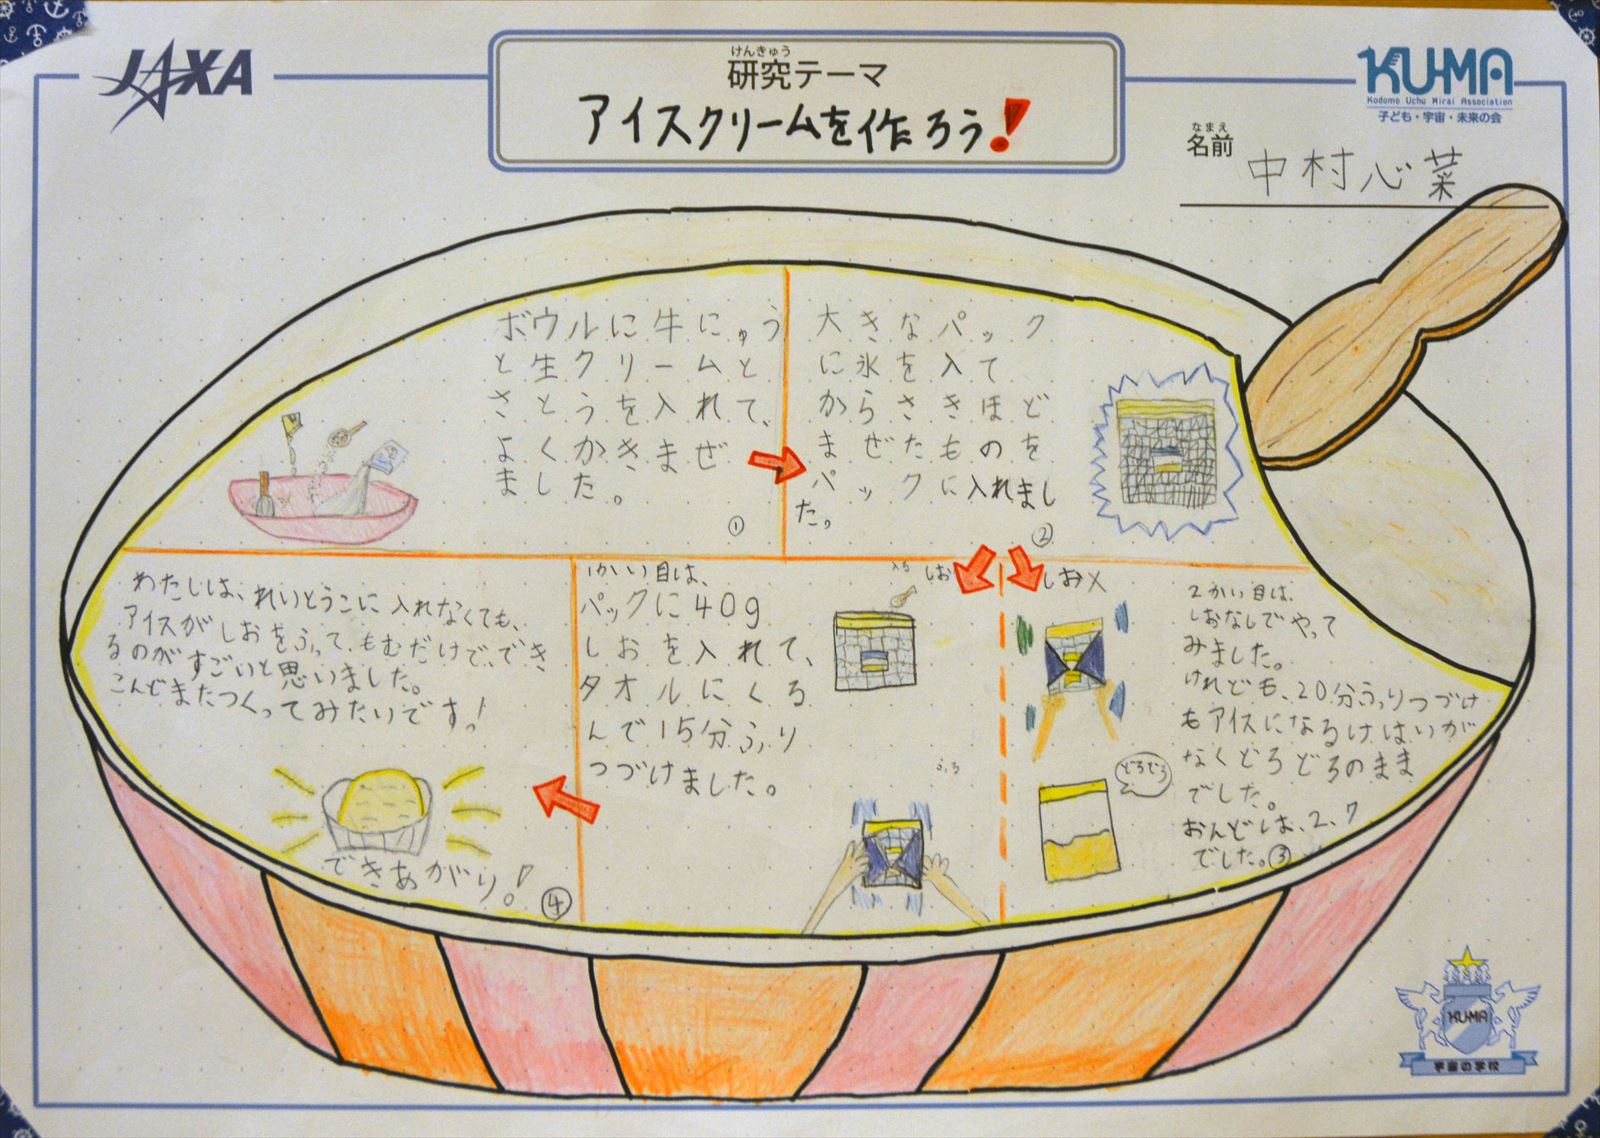 JAXA
けんきゅう
研究テーマ
アイスクリームを作ろう!
KU-MA
Kodomo Uchu Mirai Association
子ども・宇宙・未来の会
なまえ
名前
中村心菜
ボウルに牛にゅう
と生クリームと
さとうを入れて、
よくかきまぜ
ました。
①
大きなパック
に氷を入て
からさきほど
まぜたものを
パックに入れまし
た。
②
1かい目は、
パックに40g
しおを入れて、
タオルにくる
んで15分ふり
つづけました。
しお
しお×
2かい目は、
しおなしでやって
みました。
けれども、20分ふりつづけ
もアイスになるけはいが
なくどろどろのまま
でした。
おんどは、2.7
でした。③
どろどろ
わたしは、れいとうこに入れなくても、
アイスがしおをふって、もむだけで、でき
るのがすごいと思いました。
こんどまたつくってみたいですっ!
できあがり!
④
KU-MA
宇宙の学校